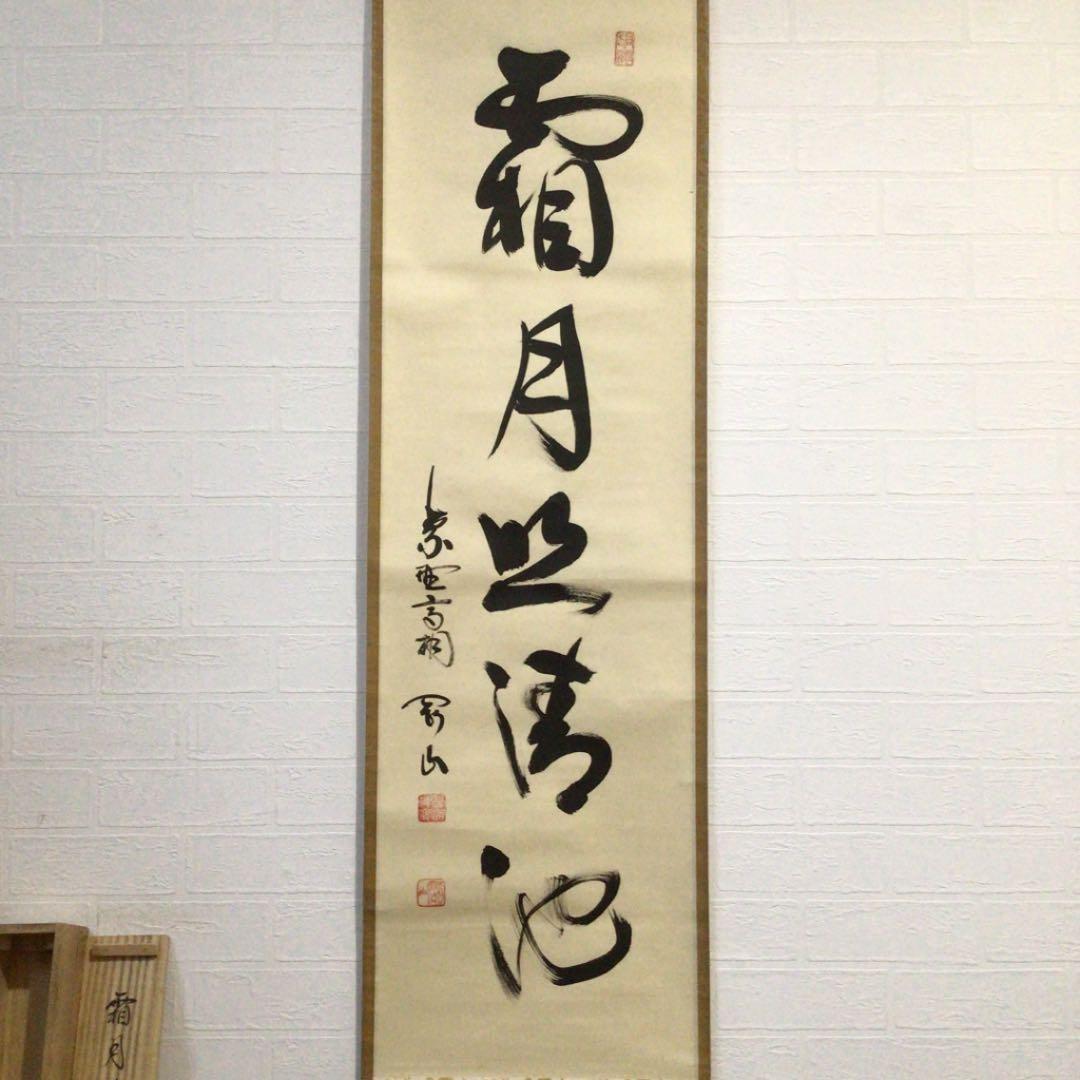 霜月照清池
紫野高桐 剛山
霜月